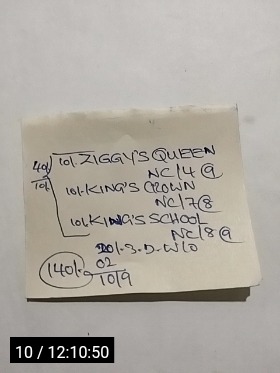 40/. 10/. ZIGGY'S QUEEN
NC/4 @
10/. 10/. KING'S CROWN
NC/7@
10/. KING'S SCHOOL
NC/8@
20/. S.D.W/O
02
140/. 10/9
10 / 12:10:50